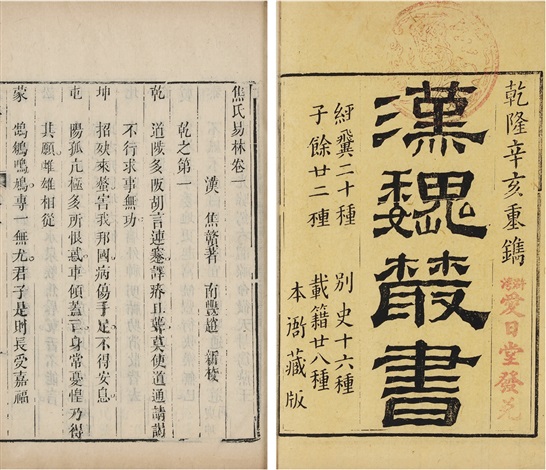 乾隆辛亥重鐫
漢魏叢書
經翼二十種 別史十六種
子餘廿二種 載籍廿八種
本衙藏版
愛日堂發兌
焦氏易林卷一
漢 焦贛著 南豐趙 新校
乾之第一
乾 道陟多阪胡言連謇譯瘖且聾莫使道通請謁
不行求事無功
坤 招殃來螫害我邦國病傷手足不得安息
屯 陽孤亢極多所恨惑車傾蓋亡身常憂惶乃得
其願雌雄相從
蒙 鵠鵴鳲鳩專一無尤君子是則長受嘉福